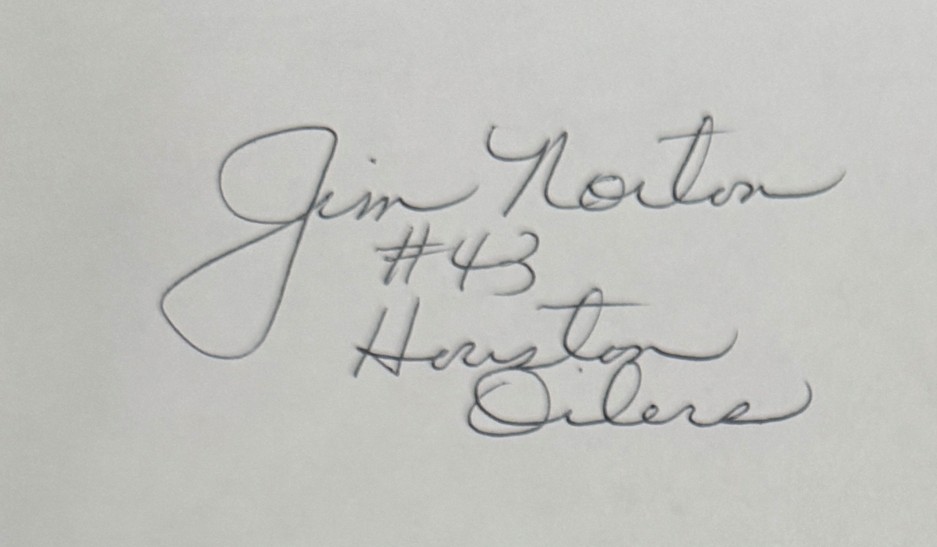 Jim Norton
#43
Houston
Oilers